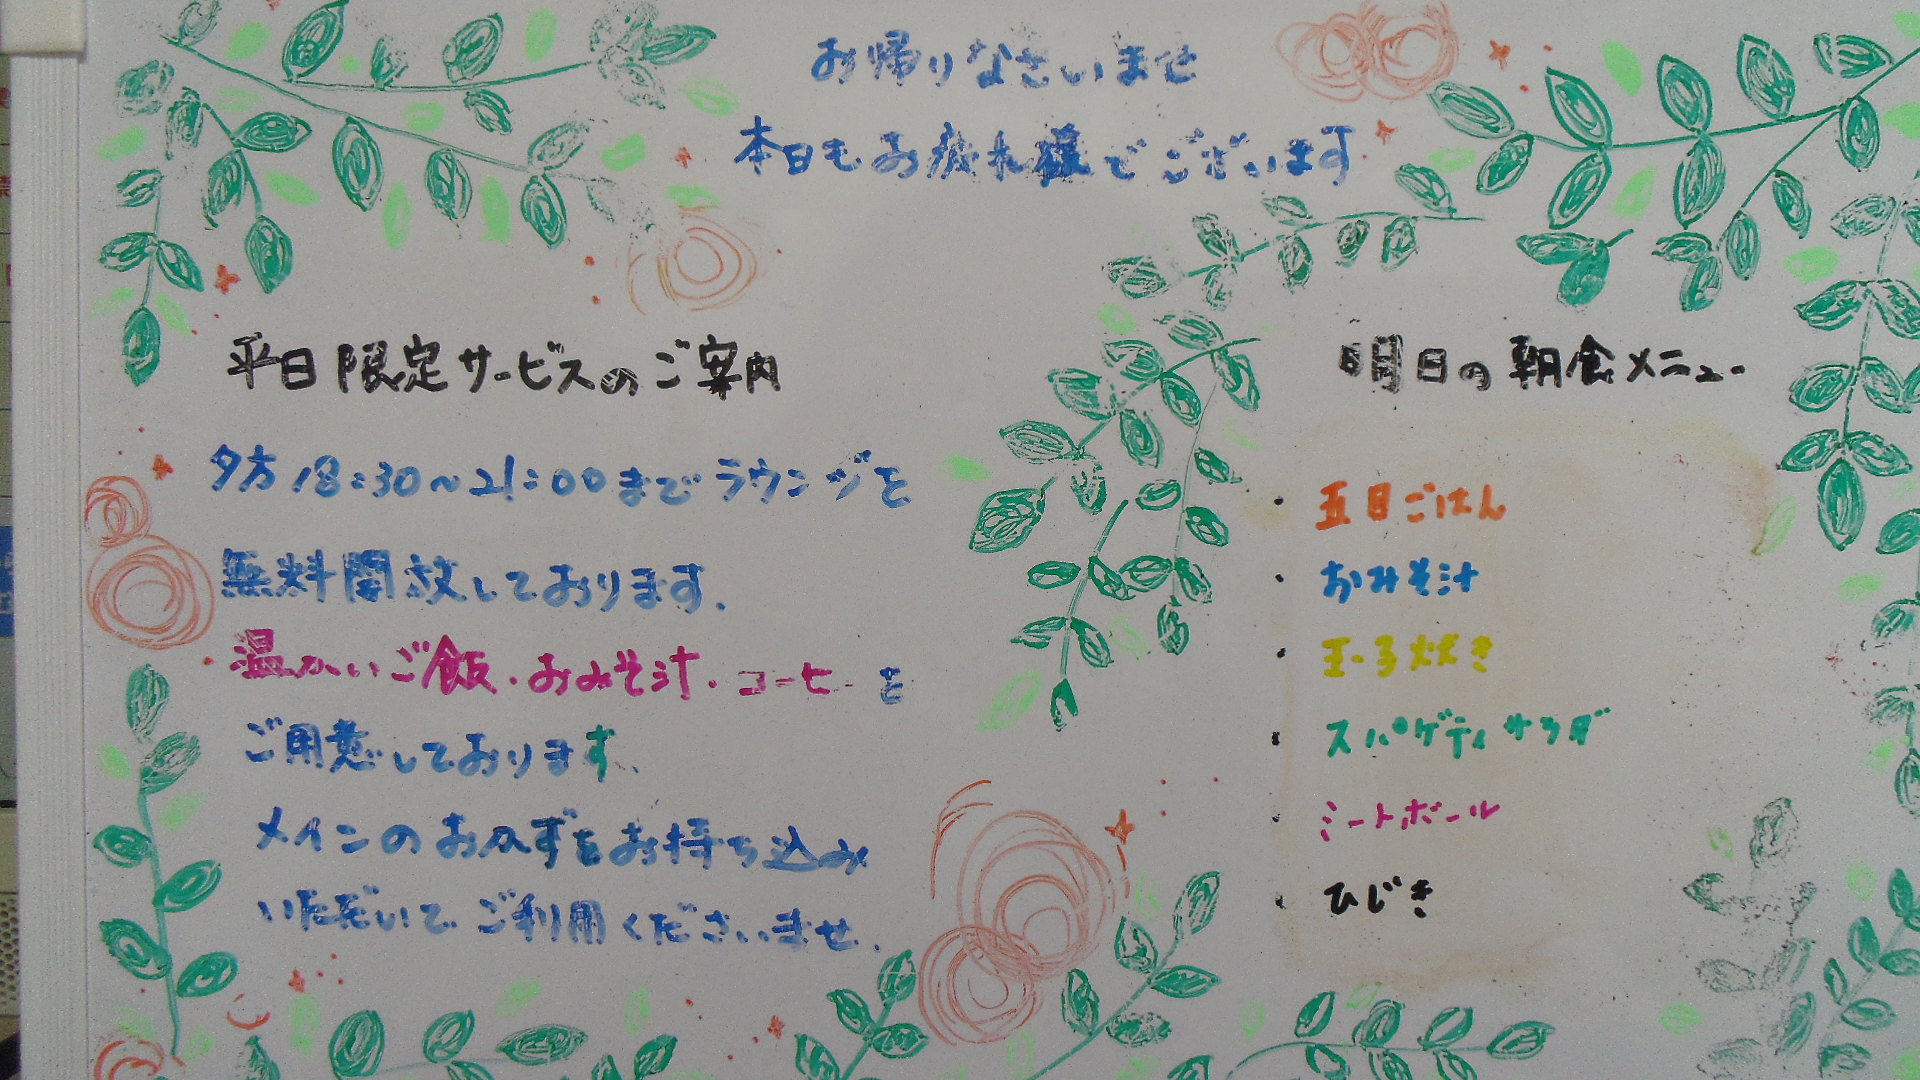 お帰りなさいませ
本日もお疲れ様でございます
平日限定サービスのご案内
夕方18:30～21:00までラウンジを
無料開放しております.
温かいご飯・おみそ汁・コーヒーを
ご用意しております.
メインのおかずをお持ち込み
いただいてご利用くださいませ.
明日の朝食メニュー
・五目ごはん
・おみそ汁
・玉子炊き
・スパゲティサラダ
・ミートボール
・ひじき